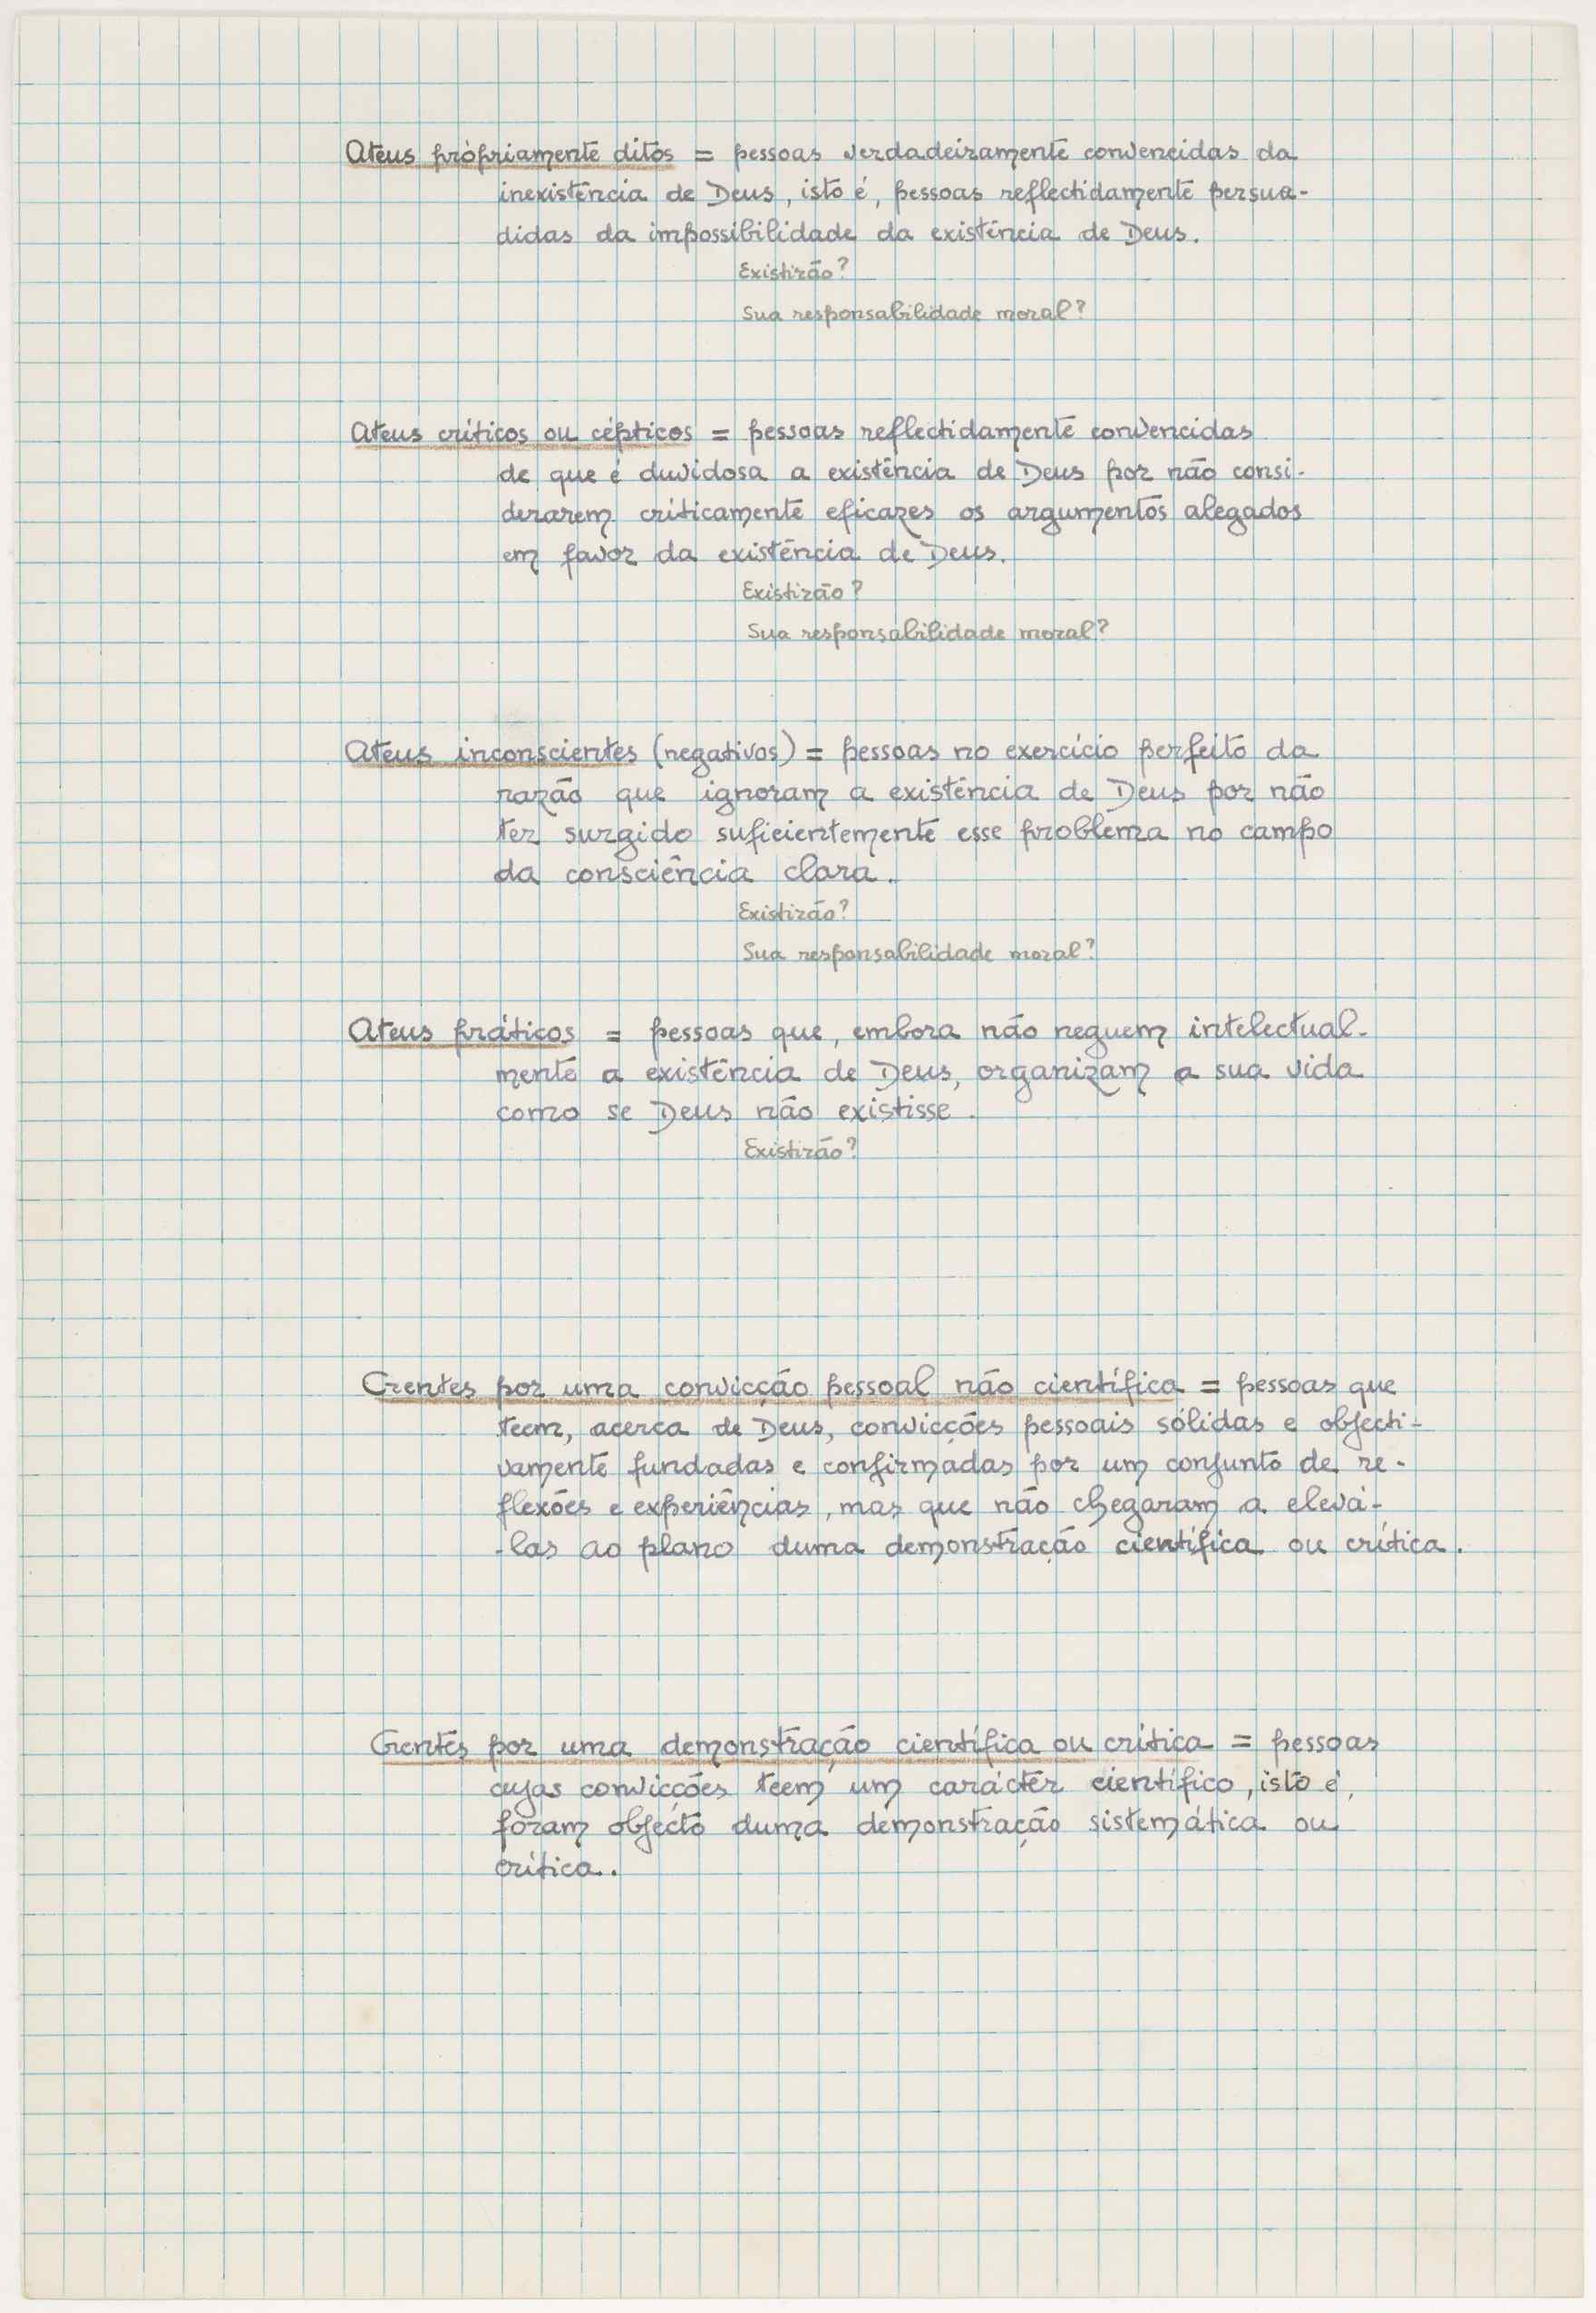 Ateus pròpriamente ditos = pessoas verdadeiramente convencidas da
inexistência de Deus, isto é, pessoas reflectidamente persua-
didas da impossibilidade da existência de Deus.
Existirão?
Sua responsabilidade moral?
Ateus críticos ou cépticos = pessoas reflectidamente convencidas
de que é duvidosa a existência de Deus por não consi-
derarem críticamente eficazes os argumentos alegados
em favor da existência de Deus.
Existirão?
Sua responsabilidade moral?
Ateus inconscientes (negativos) = pessoas no exercício perfeito da
razão que ignoram a existência de Deus por não
ter surgido suficientemente esse problema no campo
da consciência clara.
Existirão?
Sua responsabilidade moral?
Ateus práticos = pessoas que, embora não neguem intelectual-
mente a existência de Deus, organizam a sua vida
como se Deus não existisse.
Existirão?
Crentes por uma convicção pessoal não científica = pessoas que
teem, acerca de Deus, convicções pessoais sólidas e objecti-
vamente fundadas e confirmadas por um conjunto de re-
flexões e experiências, mas que não chegaram a elevá-
-las ao plano duma demonstração científica ou crítica.
Crentes por uma demonstração científica ou crítica = pessoas
cujas convicções teem um carácter científico, isto é,
foram objecto duma demonstração sistemática ou
crítica..